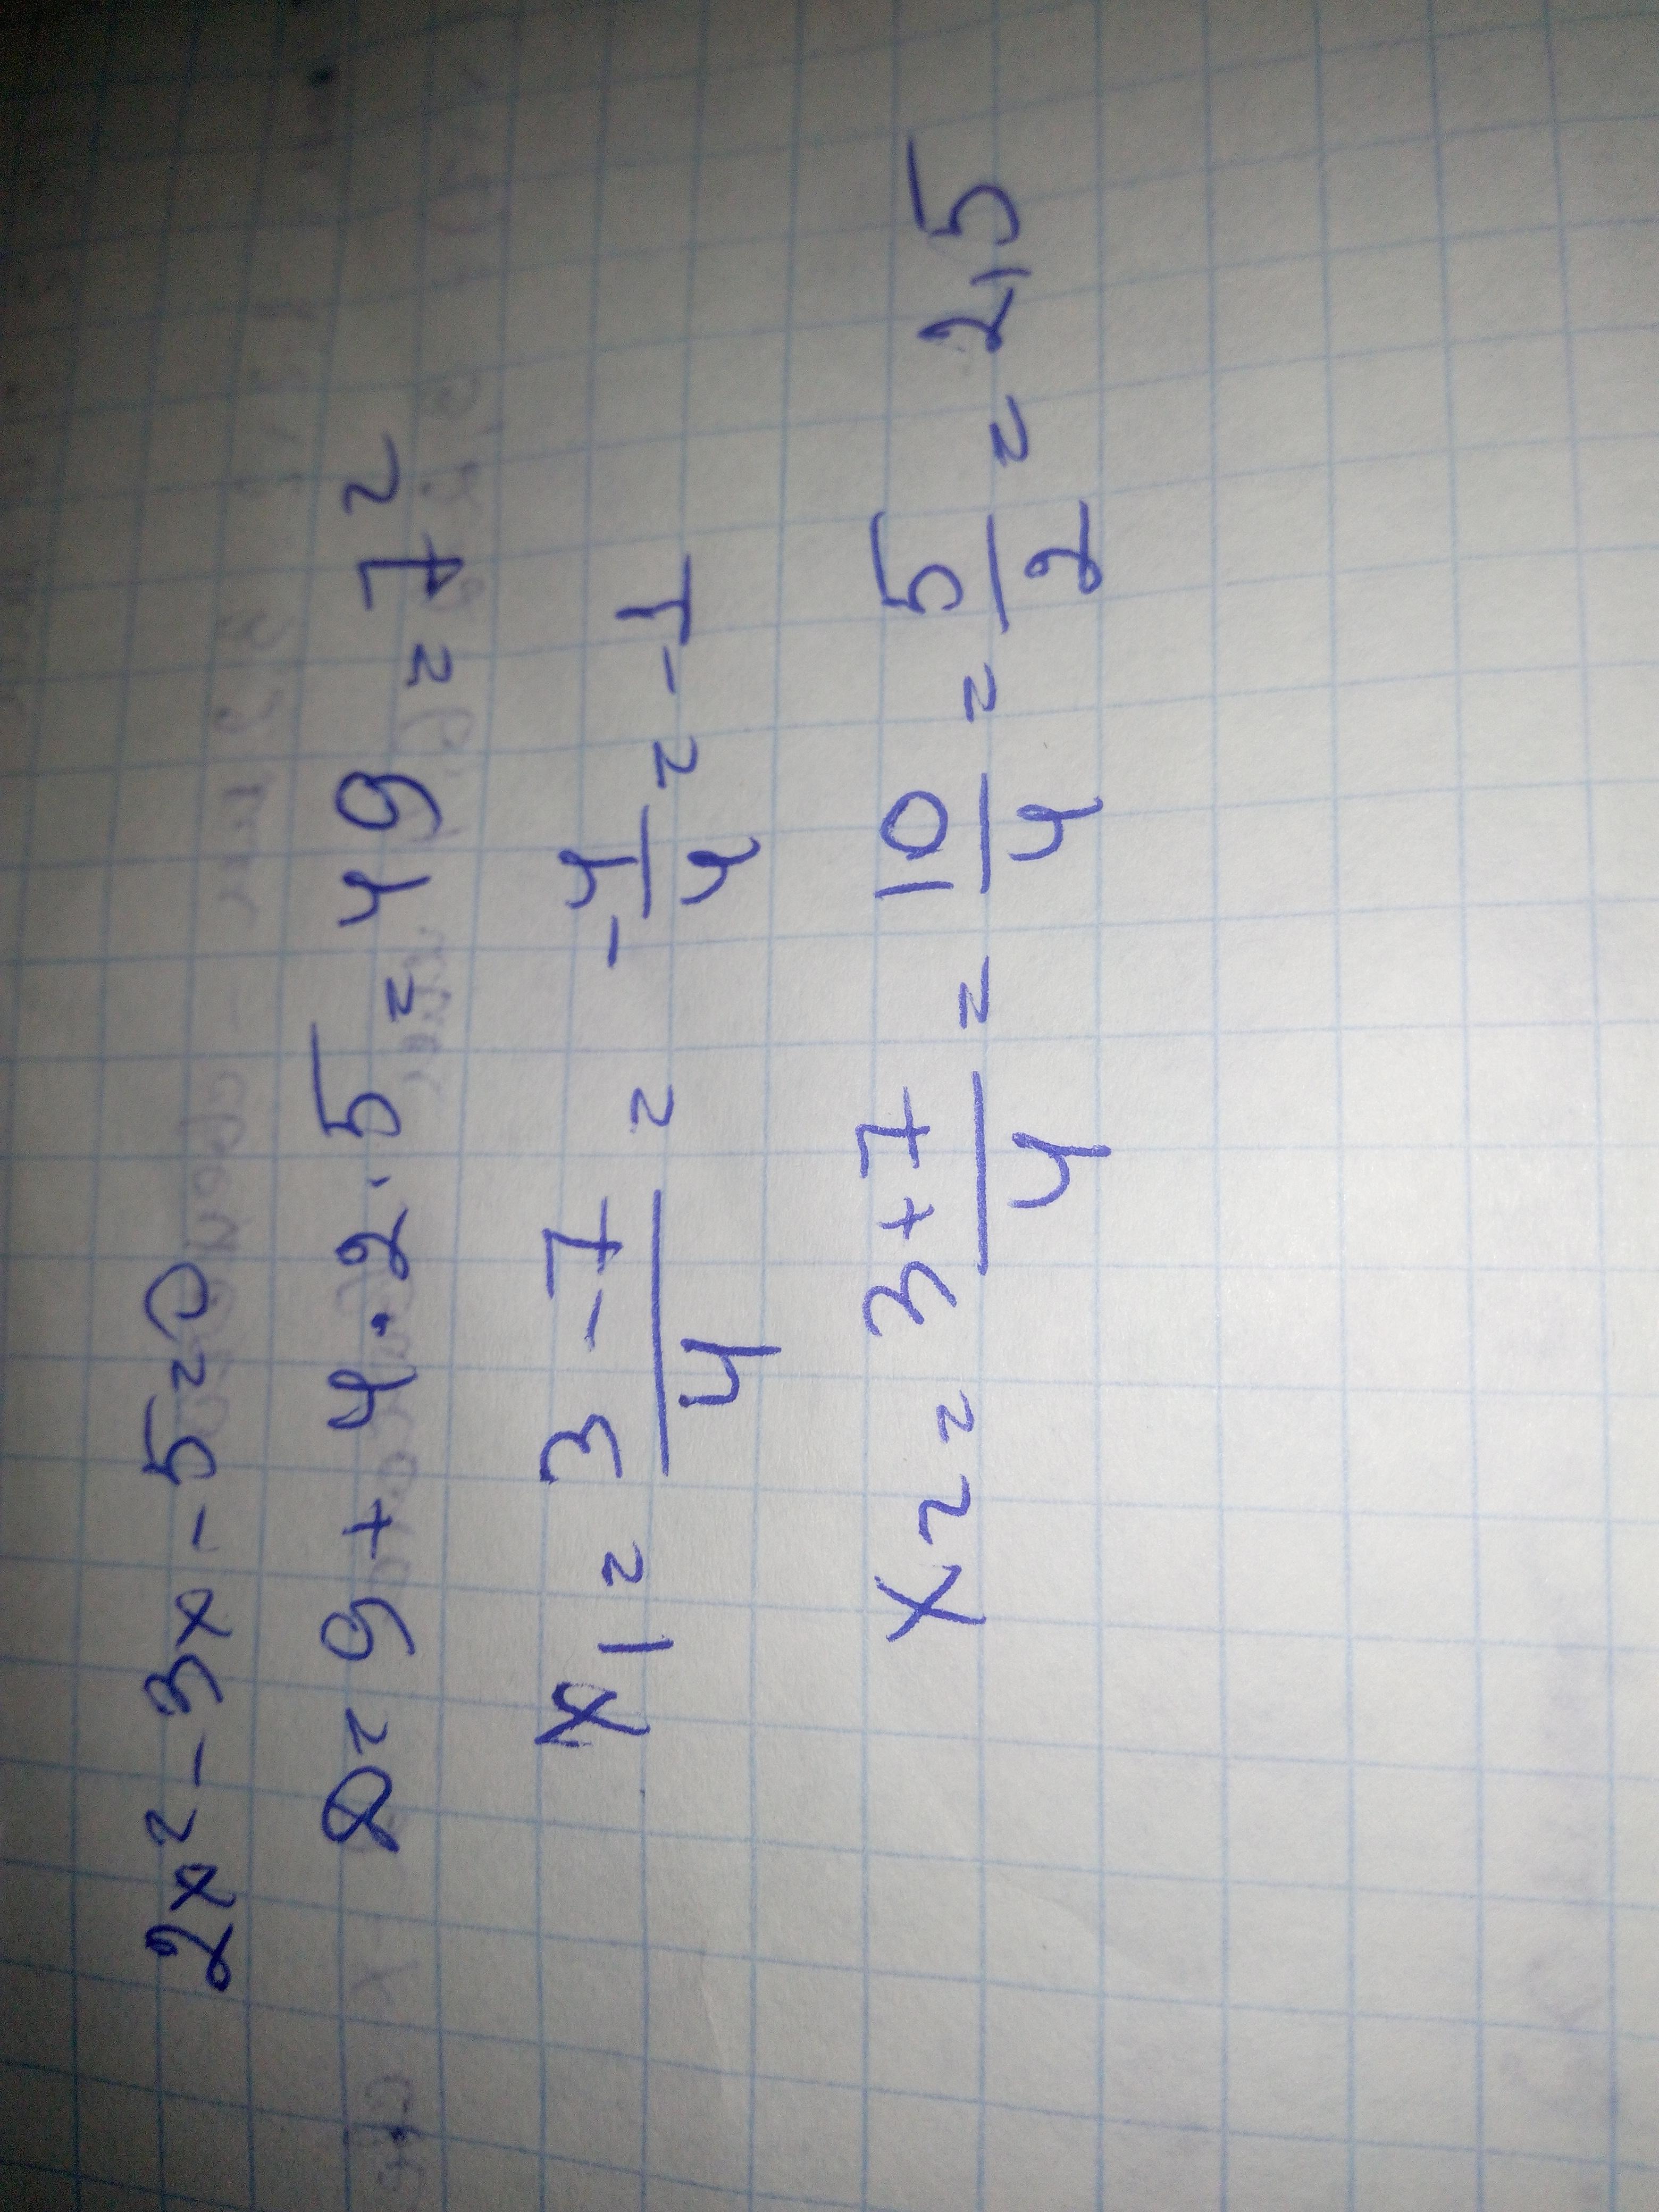 2x² - 3x - 5 = 0
D = 9 + 4 · 2 · 5 = 49 = 7²
x1 = (3 - 7)/4 = -4/4 = -1
x2 = (3 + 7)/4 = 10/4 = 5/2 = 2,5